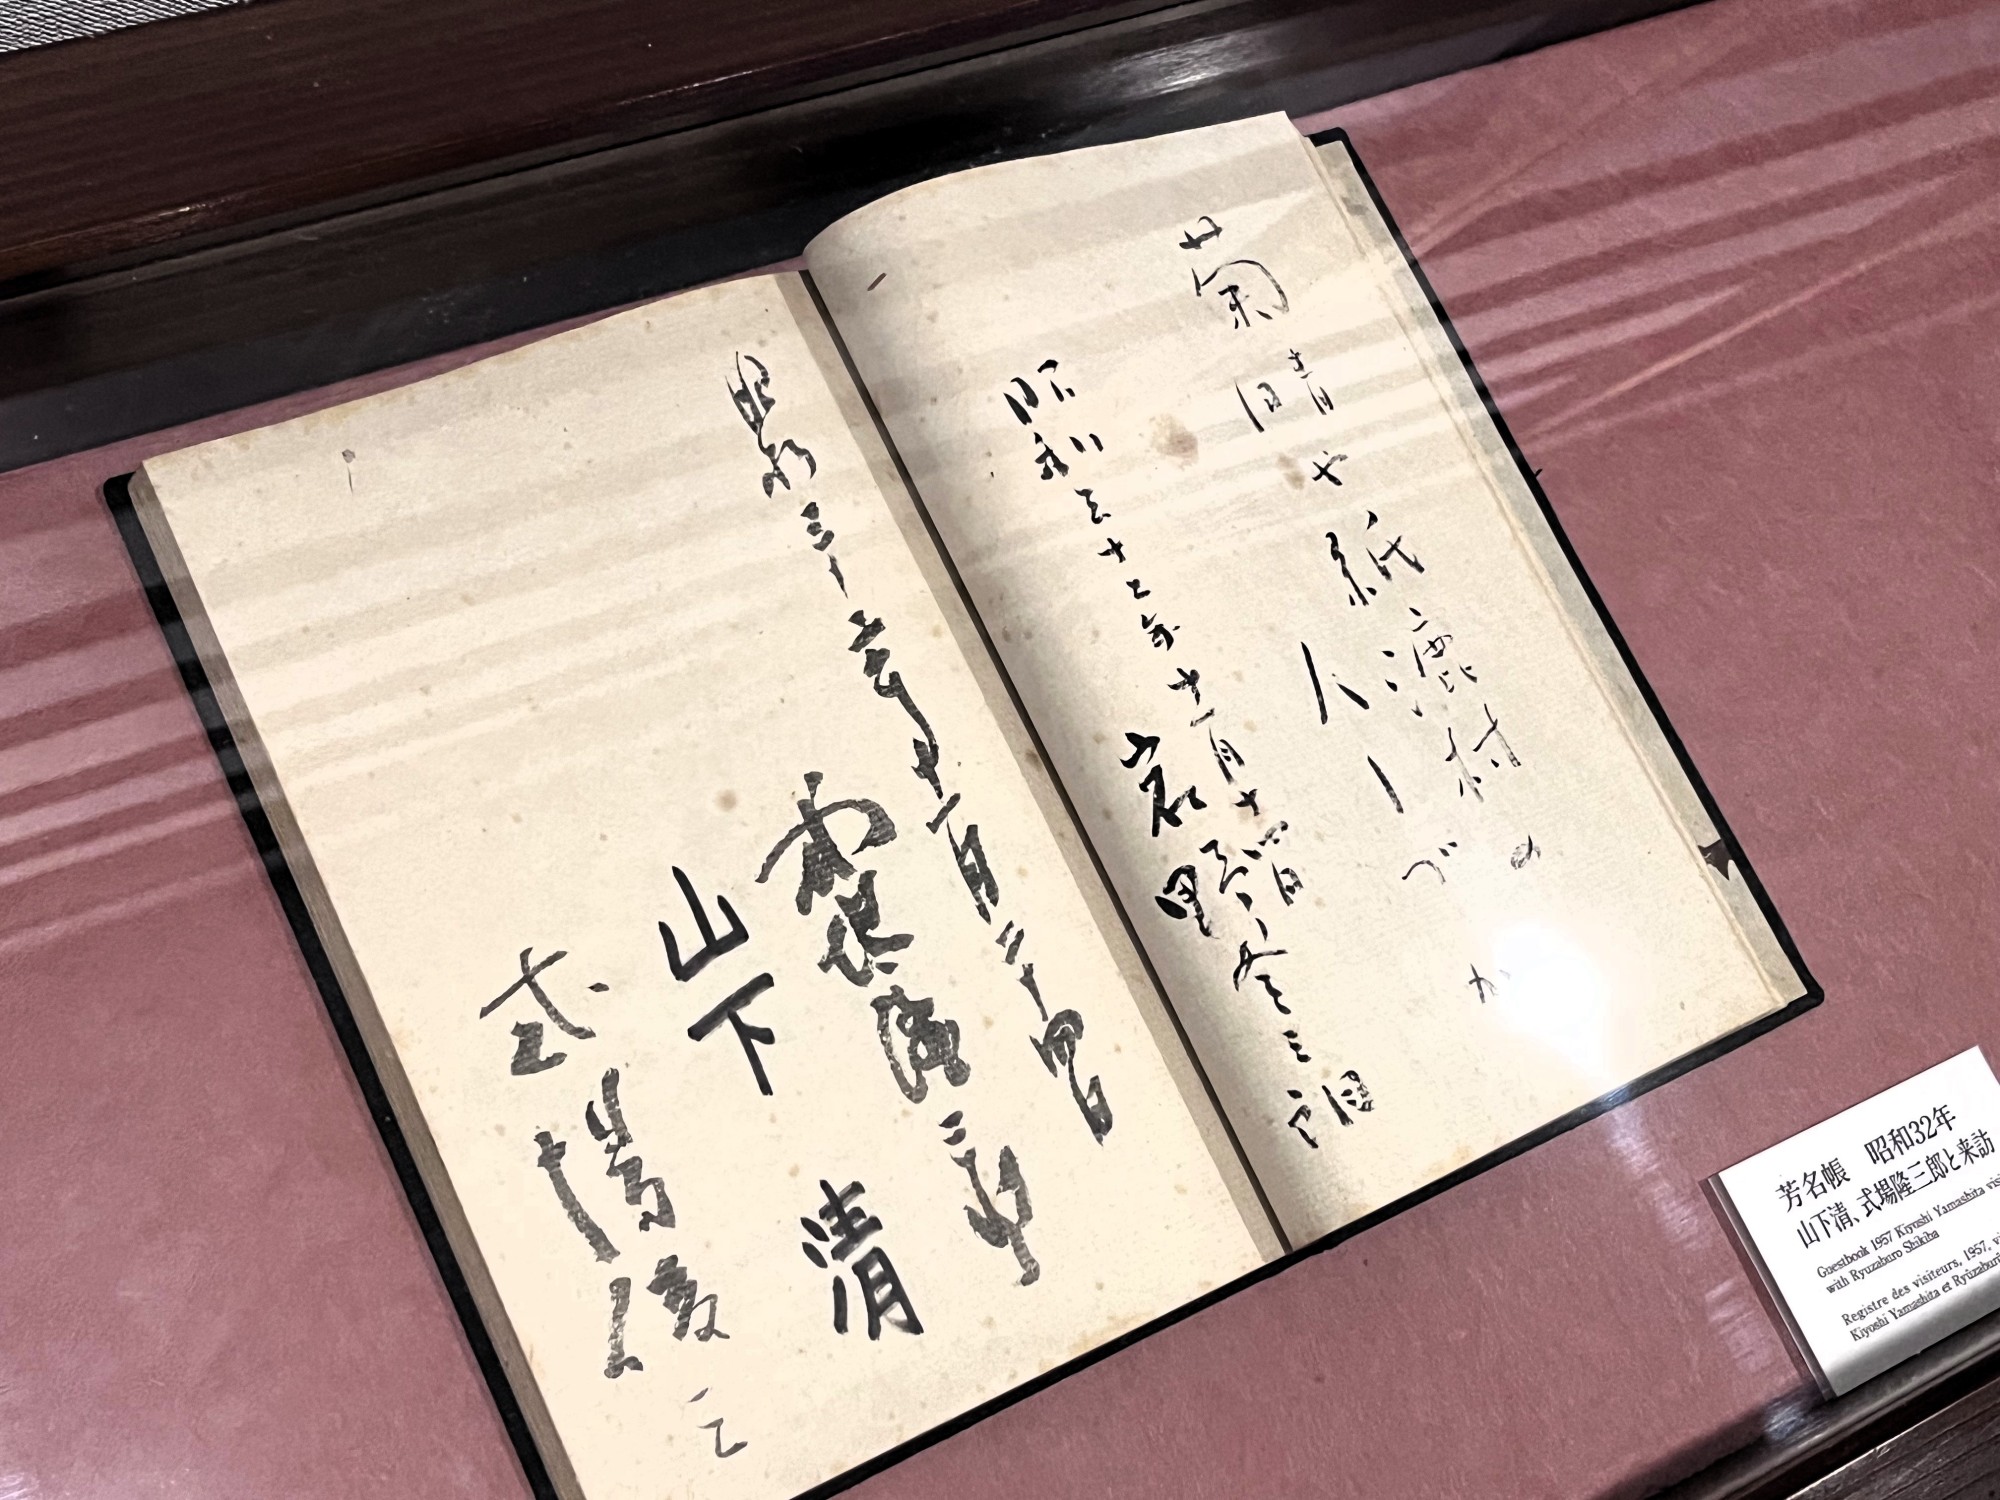 菊晴や紙漉村の
人しづか
昭和三十二年十一月十四日
岩野
昭和三十二年十一月二十四日
式場隆三郎
山下 清
式場俊三
芳名帳 昭和32年
山下清、式場隆三郎と来訪
Guestbook 1957 Kiyoshi Yamashita
with Ryuzaburo Shikiba
Registre des visiteurs, 1957,
Kiyoshi Yamashita et